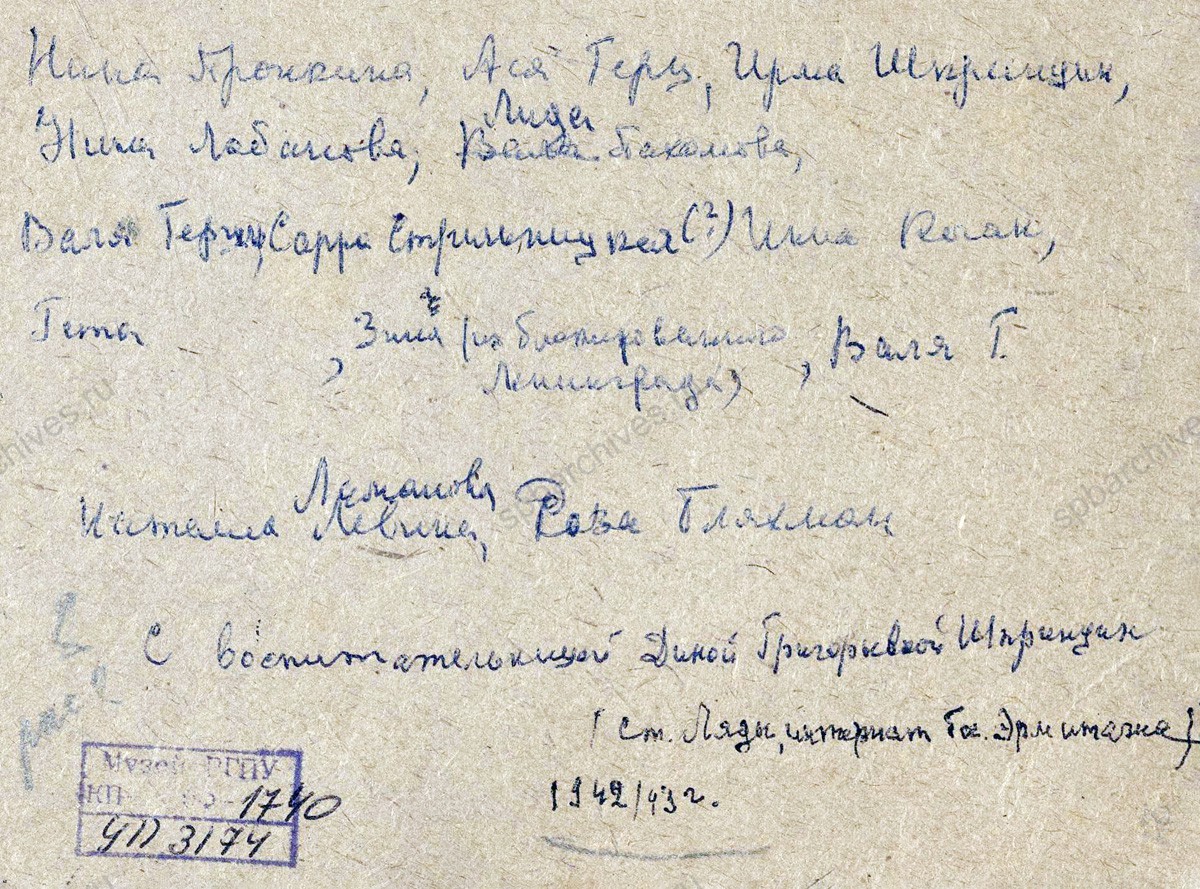 Нина Пронкина, Ася Герц, Ирма Шпринцин,
Лида
Нина Лобанова, Валя Пахомова,
Валя Герц, Сарра Стрильницкая (?) Инна Коган,
Гета , Зина (из блокированного , Валя Г.
Ленинграда)
Лиманова
Наталия Левина, Роза Бляхман
С воспитательницей Диной Григорьевной Шпринцин
(ст. Ляды, интернат Гос. Эрмитажа)
1942/43 г.
Музей РГПУ
КП 1740
УП 3174
spbarchives.ru